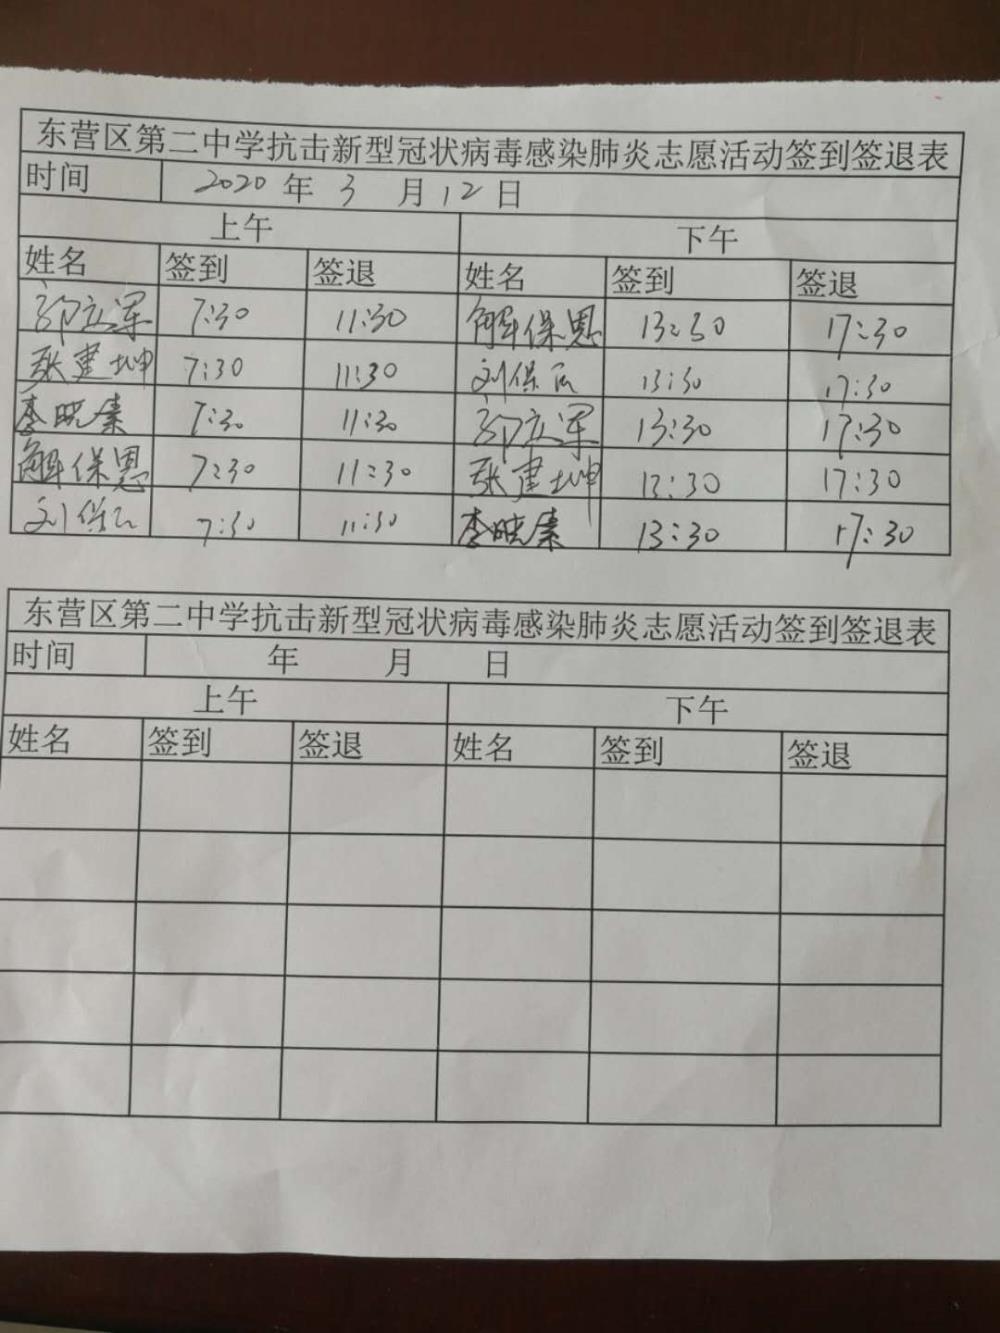 东营区第二中学抗击新型冠状病毒感染肺炎志愿活动签到签退表
时间 2020 年 3 月 12 日
上午 下午
姓名 签到 签退 姓名 签到 签退
郭立军 7:30 11:30 解保恩 13:30 17:30
张建坤 7:30 11:30 刘保 13:30 17:30
李晓秦 7:30 11:30 郭立军 13:30 17:30
解保恩 7:30 11:30 张建坤 13:30 17:30
刘保 7:30 11:30 李晓秦 13:30 17:30
东营区第二中学抗击新型冠状病毒感染肺炎志愿活动签到签退表
时间 年 月 日
上午 下午
姓名 签到 签退 姓名 签到 签退